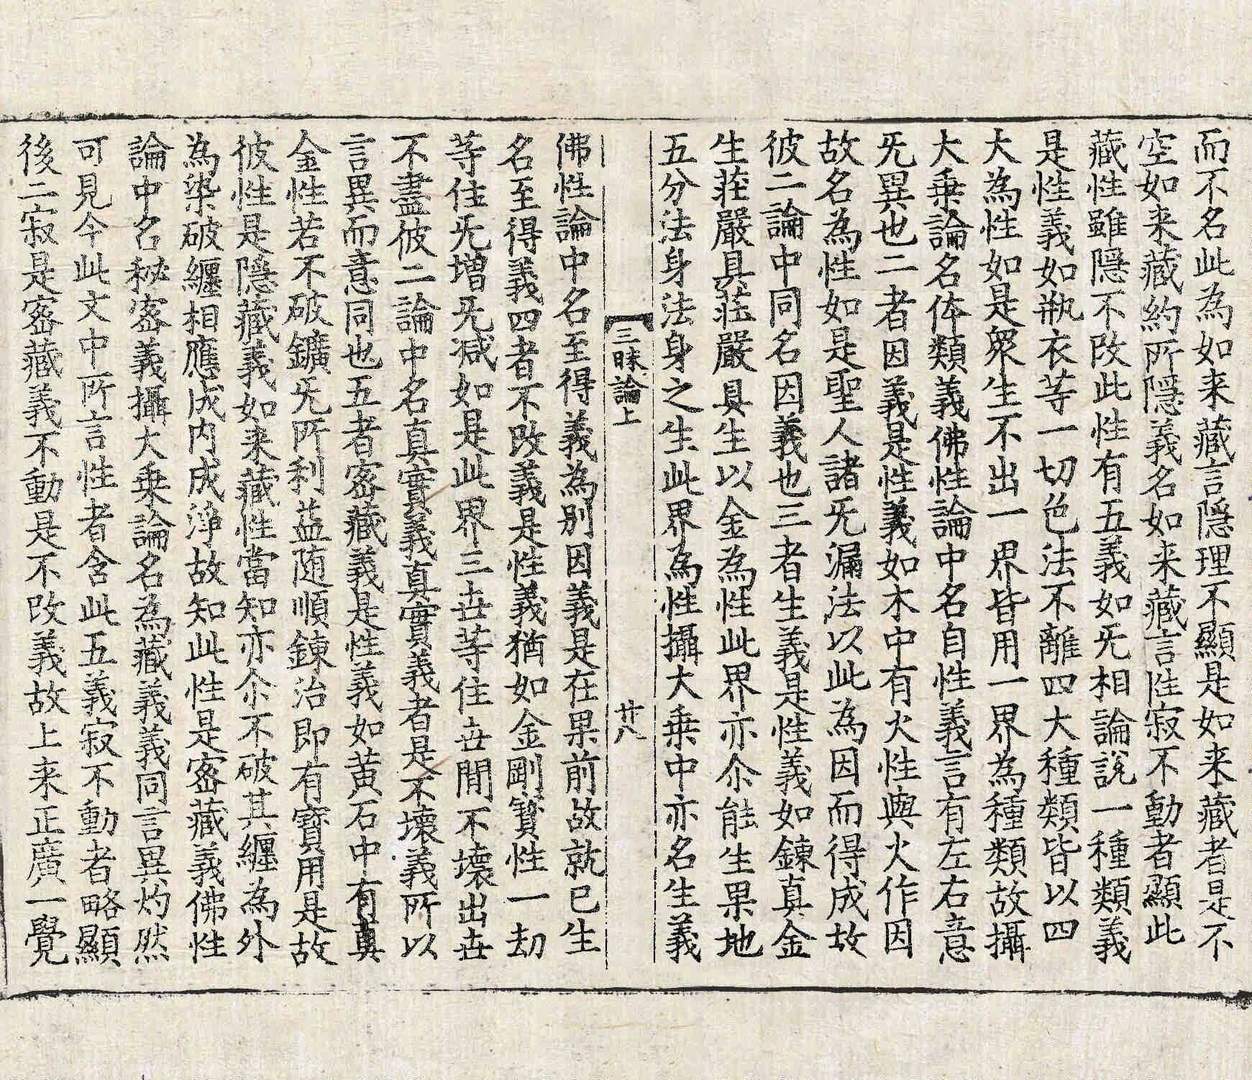 而不名此為如来藏言隱理不顯是如来藏者是不
空如来藏約所隱義名如来藏言性寂不動者顯此
藏性雖隱不改此性有五義如旡相論說一種類義
是性義如瓶衣等一切色法不離四大種類皆以四
大為性如是衆生不出一界皆用一界為種類故攝
大乗論名体類義佛性論中名自性義言有左右意
旡異也二者因義是性義如木中有火性與火作因
故名為性如是聖人諸旡漏法以此為因而得成故
彼二論中同名因義也三者生義是性義如鍊真金
生莊嚴具莊嚴具生以金為性此界亦尒能生果地
五分法身法身之生此界為性攝大乗中亦名生義
三昧論上　廿八
佛性論中名至得義為別因義是在果前故就已生
名至得義四者不改義是性義猶如金剛寳性一劫
等住旡増旡减如是此界三世等住世間不壊出世
不盡彼二論中名真實義真實義者是不壊義所以
言異而意同也五者宻藏義是性義如黃石中有真
金性若不破鑛旡所利益随順鍊治即有寳用是故
彼性是隱藏義如来藏性當知亦尒不破其纏為外
為染破纏相應成内成淨故知此性是宻藏義佛性
論中名秘宻義攝大乗論名為藏義義同言異灼然
可見今此文中所言性者含此五義寂不動者略顯
後二寂是宻藏義不動是不改義故上来正廣一覺